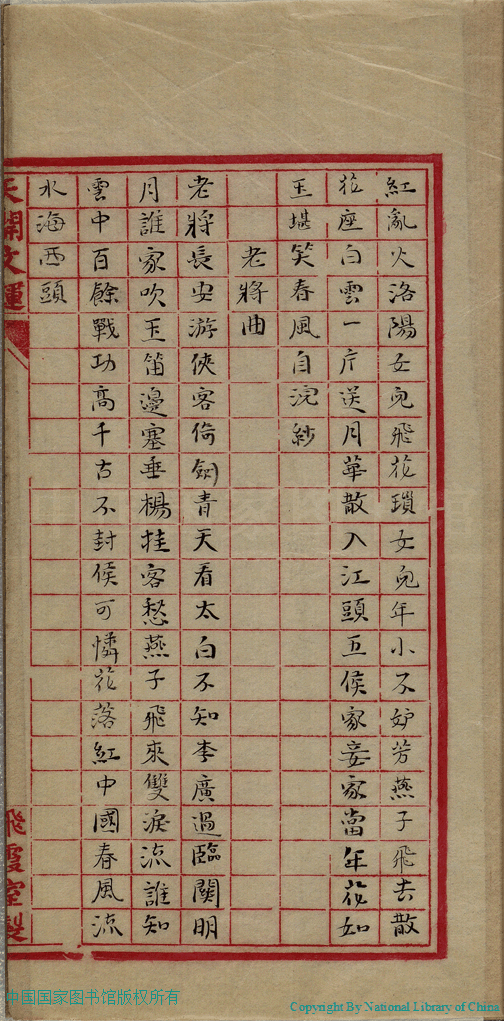 紅亂火洛陽女兒飛花瑣女兒年小不妒芳燕子飛去散
花座白雲一片送月華散入江頭五侯家妾家當年花如
玉堪笑春風自浣紗
老將曲
老將長安游俠客倚劍青天看太白不知李廣過臨關明
月誰家吹玉笛邊塞垂楊挂客愁燕子飛來雙淚流誰知
雲中百餘戰功高千古不封侯可憐花落紅中國春風流
水海西頭
天開文運
飛霞室製
中国国家图书馆版权所有
Copyright By National Library of China